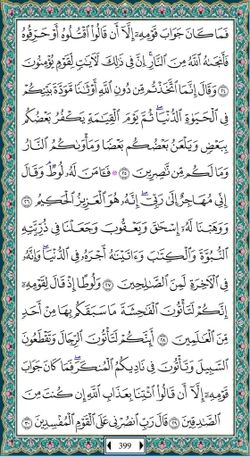 فَمَا كَانَ جَوَابَ قَوْمِهِ إِلَّا أَن قَالُوا اقْتُلُوهُ أَوْ حَرِّقُوهُ
فَأَنجَىٰهُ اللَّهُ مِنَ النَّارِ إِنَّ فِي ذَٰلِكَ لَآيَٰتٍ لِّقَوْمٍ يُؤْمِنُونَ
٢٤ وَقَالَ إِنَّمَا اتَّخَذْتُم مِّن دُونِ اللَّهِ أَوْثَٰنًا مَّوَدَّةَ بَيْنِكُمْ
فِي الْحَيَوٰةِ الدُّنْيَا ۖ ثُمَّ يَوْمَ الْقِيَٰمَةِ يَكْفُرُ بَعْضُكُم
بِبَعْضٍ وَيَلْعَنُ بَعْضُكُم بَعْضًا وَمَأْوَىٰكُمُ النَّارُ
وَمَا لَكُم مِّن نَّٰصِرِينَ ٢٥ ۞ فَـَٔامَنَ لَهُ لُوطٌ ۘ وَقَالَ
إِنِّي مُهَاجِرٌ إِلَىٰ رَبِّي ۖ إِنَّهُ هُوَ الْعَزِيزُ الْحَكِيمُ ٢٦
وَوَهَبْنَا لَهُ إِسْحَٰقَ وَيَعْقُوبَ وَجَعَلْنَا فِي ذُرِّيَّتِهِ
النُّبُوَّةَ وَالْكِتَٰبَ وَءَاتَيْنَٰهُ أَجْرَهُ فِي الدُّنْيَا ۖ وَإِنَّهُ
فِي الْآخِرَةِ لَمِنَ الصَّٰلِحِينَ ٢٧ وَلُوطًا إِذْ قَالَ لِقَوْمِهِ
إِنَّكُمْ لَتَأْتُونَ الْفَٰحِشَةَ مَا سَبَقَكُم بِهَا مِنْ أَحَدٍ
مِّنَ الْعَٰلَمِينَ ٢٨ أَئِنَّكُمْ لَتَأْتُونَ الرِّجَالَ وَتَقْطَعُونَ
السَّبِيلَ وَتَأْتُونَ فِي نَادِيكُمُ الْمُنكَرَ ۖ فَمَا كَانَ جَوَابَ
قَوْمِهِ إِلَّا أَن قَالُوا ائْتِنَا بِعَذَابِ اللَّهِ إِن كُنتَ مِنَ
الصَّٰدِقِينَ ٢٩ قَالَ رَبِّ انصُرْنِي عَلَى الْقَوْمِ الْمُفْسِدِينَ ٣٠
399